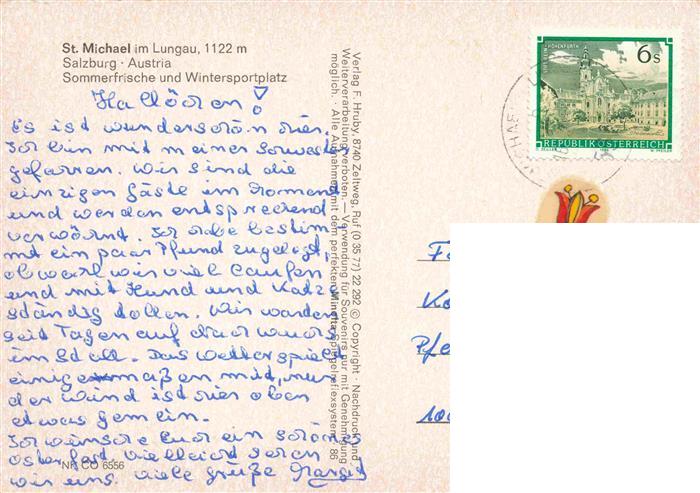 St. Michael im Lungau, 1122 m
Salzburg · Austria
Sommerfrische und Wintersportplatz
Hallöchen!
Es ist wunderschön hier.
Ich bin mit meiner Schwester
gefahren. Wir sind die
einzigen Gäste im Moment
und werden entsprechend
verwöhnt. Ich habe bestimmt
ein paar Pfund zugelegt,
obwohl wir viel laufen
und mit Hund und Katze
ständig tollen. Wir warten
seit Tagen auf
im Stall. Das Wetter spielt
einigermaßen mit, nur
der Wind ist hier oben
etwas gemein.
Ich wünsche Euch ein schönes
Osterfest, vielleicht sehen
wir uns. Viele Grüße Margit
NR. CO 6556
Verlag F. Hruby, 8740 Zeltweg, Ruf (0 35 77) 22 292 © Copyright · Nachdruck und
Weiterverarbeitung verboten. — Verwendung für Souvenirs nur mit Genehmigung
möglich. · Alle Aufnahmen mit dem perfekten Minolta-Spiegelreflexsystem 86
STIFT HOHENFURTH
6 S
REPUBLIK ÖSTERREICH